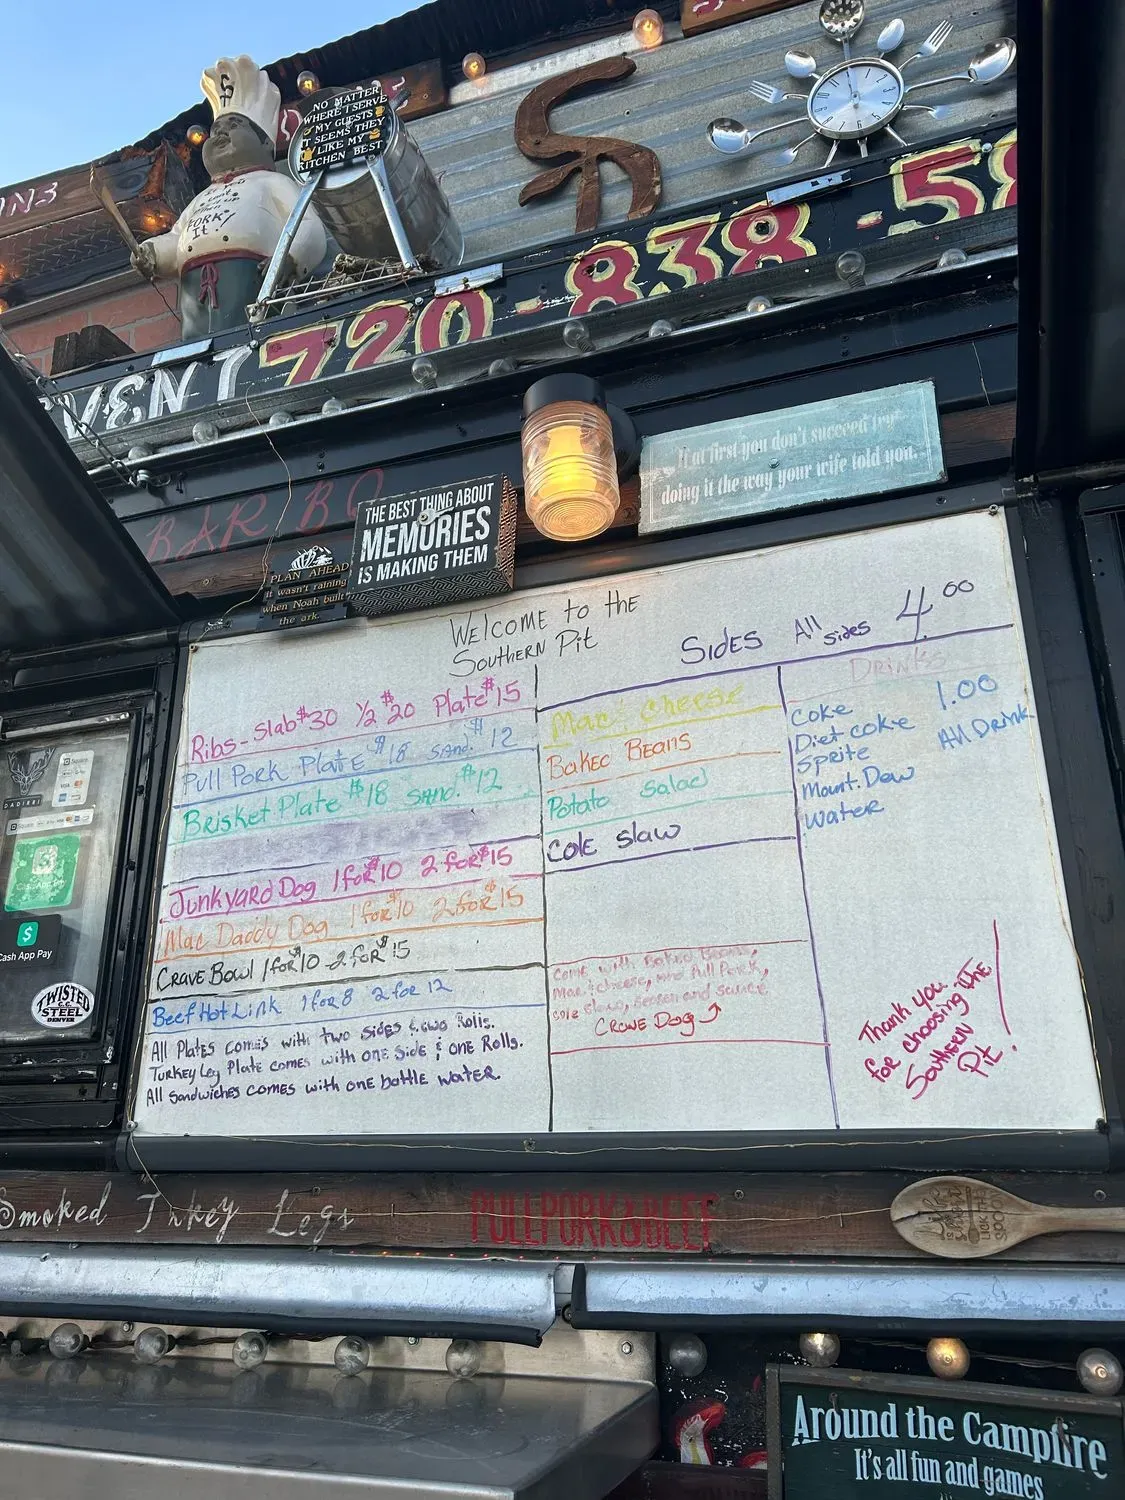 NO MATTER
WHERE I SERVE
MY GUESTS
IT SEEMS THEY
LIKE MY
KITCHEN BEST
FORK
It!
VENT 720-838-58
BAR BQ
THE BEST THING ABOUT
MEMORIES
IS MAKING THEM
If at first you don't succeed try
doing it the way your wife told you.
PLAN AHEAD
it wasn't raining
when Noah built
the ark.
Welcome to the
Southern Pit
Ribs - Slab $30 1/2 $20 Plate $15
Pull Pork Plate $18 Sand. $12
Brisket Plate $18 Sand. $12
Junkyard Dog 1 for $10 2 for $15
Mac Daddy Dog 1 for $10 2 for $15
Crave Bowl 1 for $10 - 2 for $15
Beef Hot Link 1 for 8 2 for 12
All Plates comes with two sides & two Rolls.
Turkey Leg Plate comes with one side & one Rolls.
All Sandwiches comes with one bottle water.
Sides All sides 4.00
Mac & Cheese
Baked Beans
Potato Salad
Cole Slaw
Come with Baked Beans,
Mac & cheese, and Pull Pork,
cole slaw, season and sauce.
Crave Dog
Drinks
Coke 1.00
Diet Coke All Drink
Sprite
Mount. Dew
Water
Thank you
for choosing the
Southern
Pit!
DADIRRI
Square
VISA
Square
Cash App Pay
Cash App Pay
TWISTED
C.C.
STEEL
DENVER
Smoked Turkey Legs
PULLPORK&BEEF
Around the Campfire
It's all fun and games